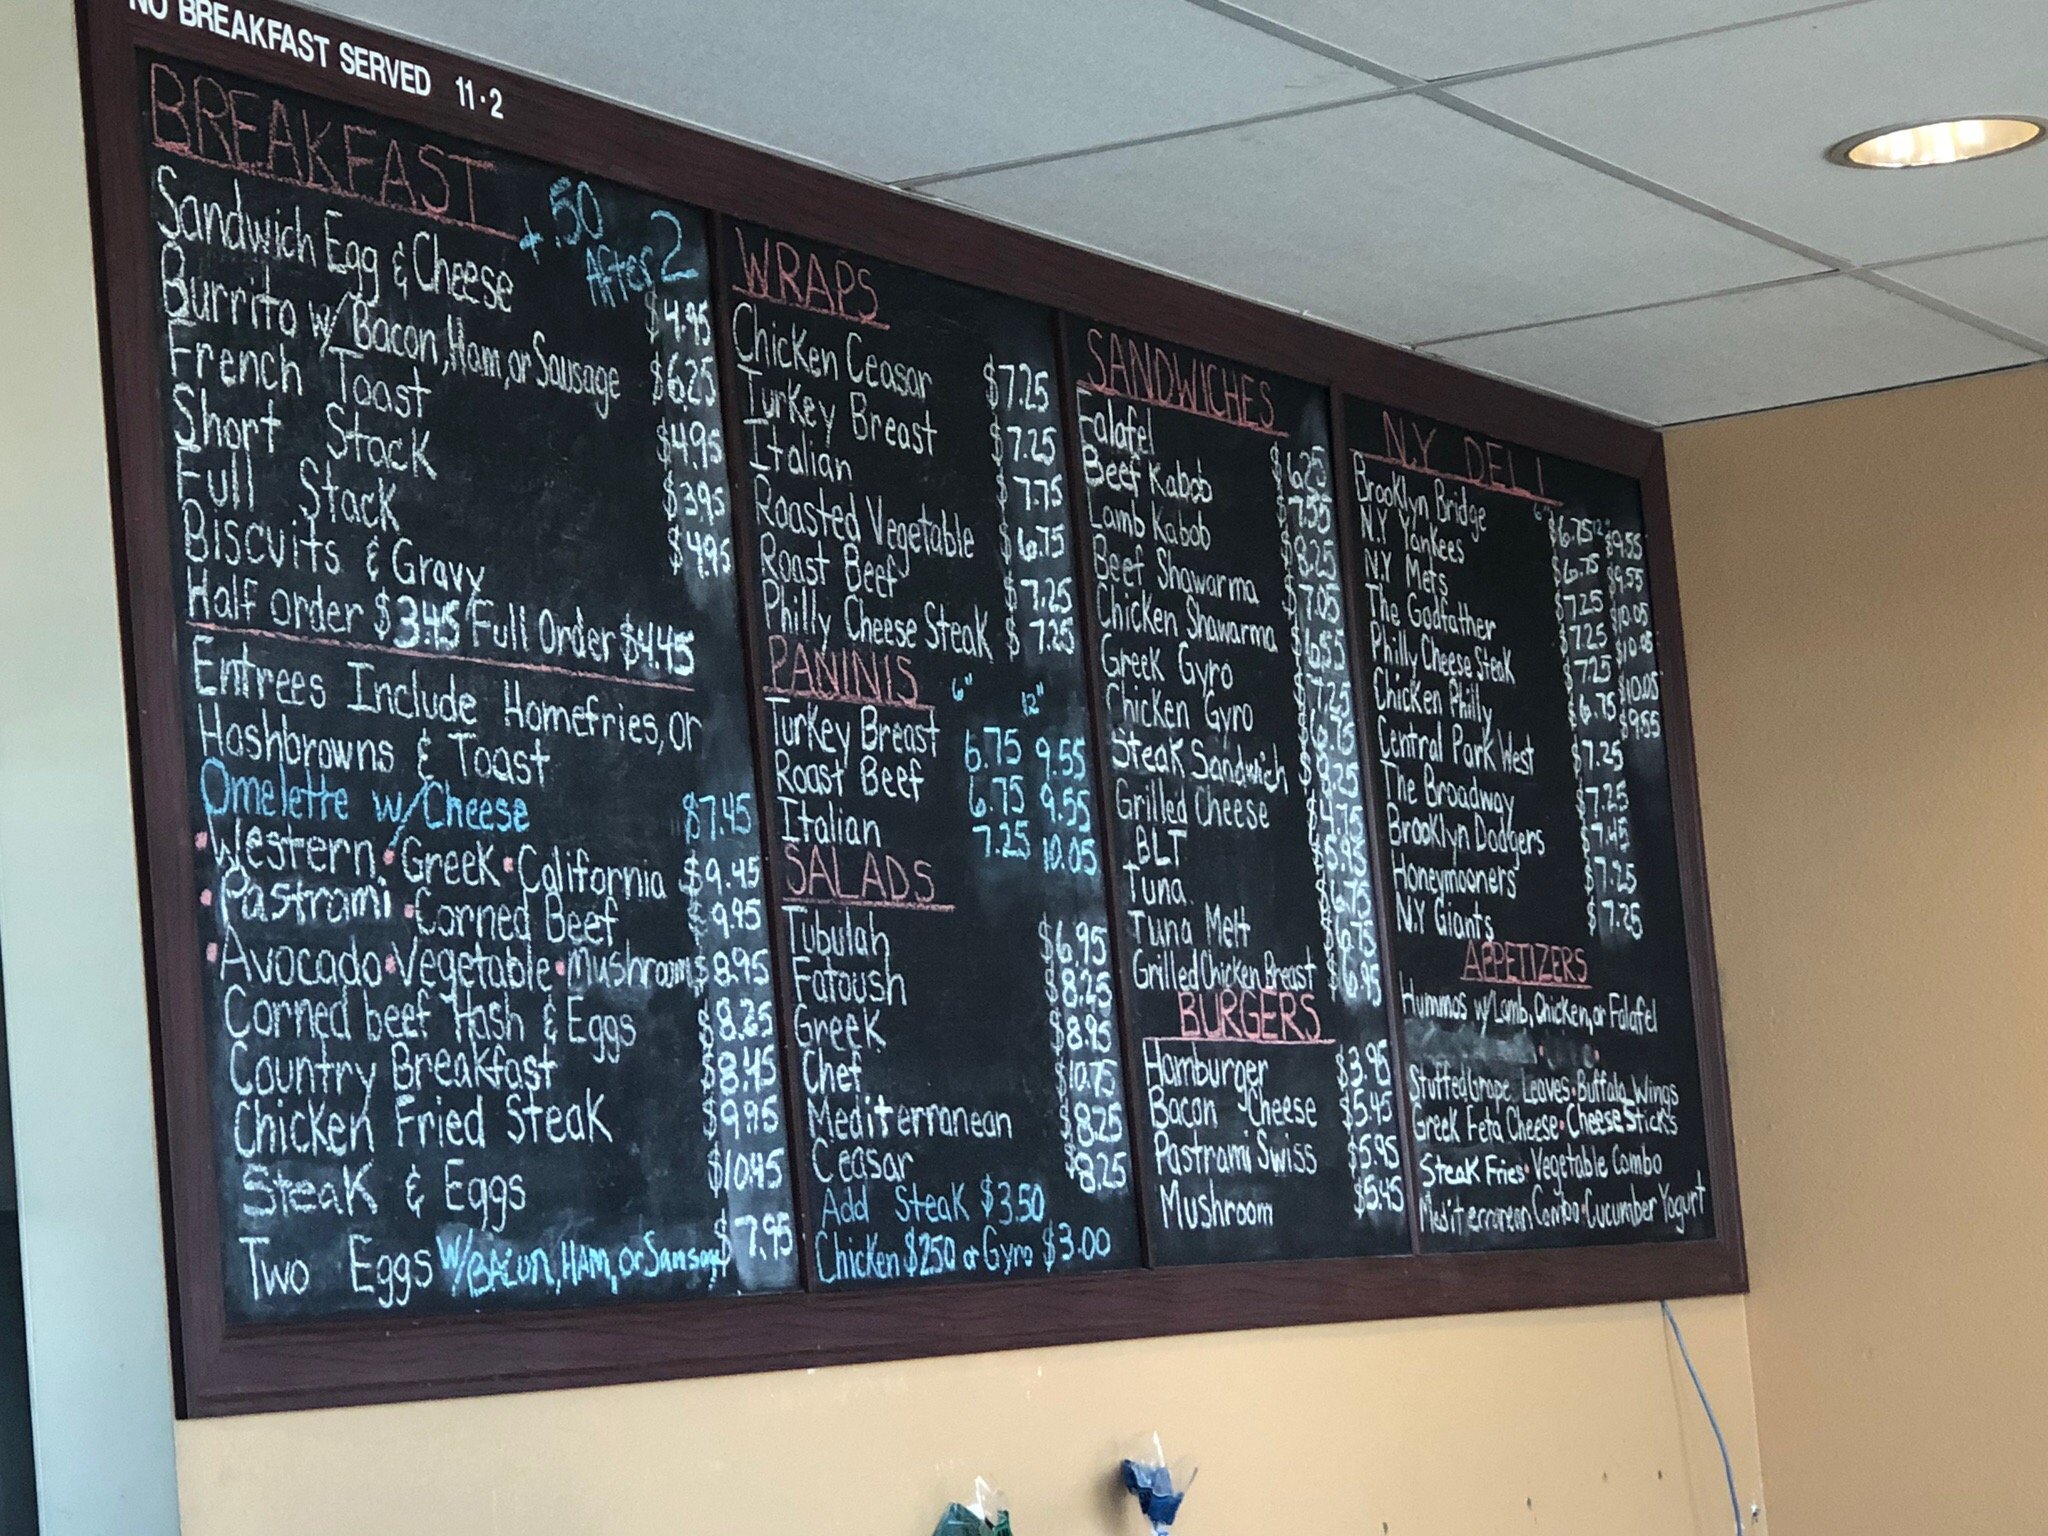 NO BREAKFAST SERVED 11-2
BREAKFAST
+.50 After 2
Sandwich Egg & Cheese $4.95
Burrito w/Bacon, Ham, or Sausage $6.25
French Toast $4.95
Short Stack $3.95
Full Stack $4.95
Biscuits & Gravy
Half Order $3.45/Full Order $4.45
Entrees Include Homefries, or
Hashbrowns & Toast
Omelette w/Cheese $7.45
•Western •Greek •California $9.45
•Pastrami •Corned Beef $9.95
•Avocado •Vegetable •Mushroom $8.95
Corned beef Hash & Eggs $8.25
Country Breakfast $8.45
Chicken Fried Steak $9.95
Steak & Eggs $10.45
Two Eggs w/BACON, HAM, or Sausage $7.95
WRAPS
Chicken Ceasar $7.25
Turkey Breast $7.25
Italian $7.75
Roasted Vegetable $6.75
Roast Beef $7.25
Philly Cheese Steak $7.25
PANINIS 6" 12"
Turkey Breast 6.75 9.55
Roast Beef 6.75 9.55
Italian 7.25 10.05
SALADS
Tubulah $6.95
Fatoush $8.25
Greek $8.95
Chef $10.75
Mediterranean $8.25
Ceasar $8.25
Add Steak $3.50
Chicken $2.50 or Gyro $3.00
SANDWICHES
Falafel $6.25
Beef Kabob $7.55
Lamb Kabob $8.25
Beef Shawarma $7.05
Chicken Shawarma $6.55
Greek Gyro $7.25
Chicken Gyro $6.75
Steak Sandwich
Grilled Cheese $4.75
BLT $5.95
Tuna $6.75
Tuna Melt $6.75
Grilled Chicken Breast $6.95
BURGERS
Hamburger $3.95
Bacon Cheese $5.45
Pastrami Swiss $5.95
Mushroom $5.45
N.Y DELI
Brooklyn Bridge 6" $6.75 12" $9.55
N.Y Yankees $6.75 $9.55
N.Y Mets $7.25 $10.05
The Godfather $7.25 $10.05
Philly Cheese Steak $7.25 $10.05
Chicken Philly $6.75 $9.55
Central Park West $7.25
The Broadway $7.25
Brooklyn Dodgers $7.45
Honeymooners $7.25
N.Y Giants $7.25
APPETIZERS
Hummos w/Lamb, Chicken, or Falafel
Stuffed Grape Leaves •Buffalo Wings
Greek Feta Cheese •Cheese Sticks
Steak Fries •Vegetable Combo
Mediterranean Combo •Cucumber Yogurt